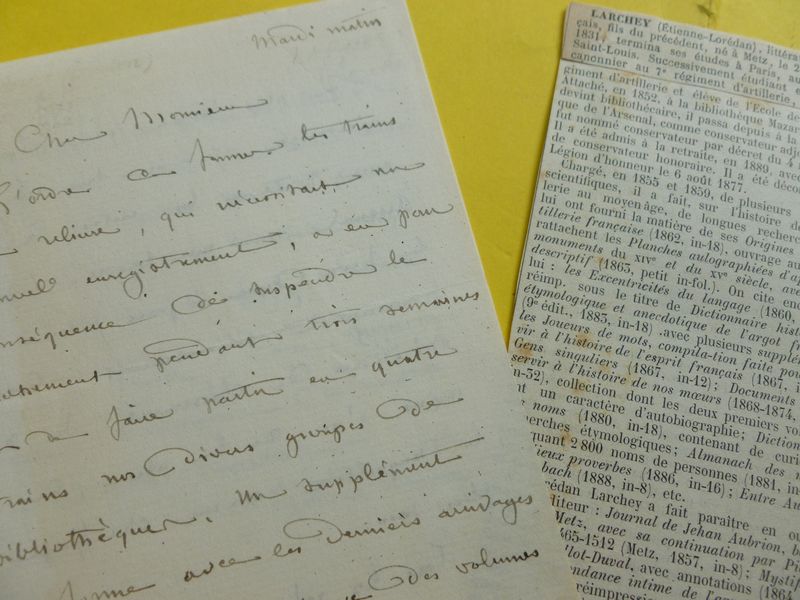 Mardi matin
Cher Monsieur
L'ordre de fermer les trains
reliure, qui nécessitait un
enregistrement, a eu pour
conséquence de suspendre le
pendant trois semaines
de faire partir en quatre
trains nos divers groupes de
bibliothèques. Un supplément
ferme avec les derniers arrivages
des volumes
LARCHEY (Étienne-Lorédan), littéra
çais, fils du précédent, né à Metz, le 2
1831, termina ses études à Paris, au
Saint-Louis. Successivement étudian
canonnier au 7e régiment d'artillerie,
giment d'artillerie et élève de l'Ecole de
Attaché, en 1852, à la bibliothèque Mazar
devint bibliothécaire, il passa depuis à la
que de l'Arsenal, comme conservateur adj
fut nommé conservateur par décret du 4
Il a été admis à la retraite, en 1889, avec
de conservateur honoraire. Il a été décor
Légion d'honneur le 6 août 1877.
Chargé, en 1855 et 1859, de plusieurs
scientifiques, il a fait, sur l'histoire de
lerie au moyen âge, de longues recherc
lui ont fourni la matière de ses Origines
tillerie française (1862, in-18), ouvrage au
rattachent les Planches autographiées d'ap
monuments du XIVe et du XVe siècle, ave
descriptif (1863, petit in-fol.). On cite enc
lui : les Excentricités du langage (1860,
réimp. sous le titre de Dictionnaire hist
étymologique et anecdotique de l'argot fr
(9e édit., 1883, in-18) .avec plusieurs supplé
les Joueurs de mots, compilation faite pou
vir à l'histoire de l'esprit français (1867, i
Gens singuliers (1867, in-12); Documents
servir à l'histoire de nos mœurs (1868-1874,
in-32), collection dont les deux premiers vo
nt un caractère d'autobiographie; Diction
noms (1880, in-18), contenant de curi
erches étymologiques; Almanach des n
quant 2 800 noms de personnes (1881, in
ieux proverbes (1886, in-16); Entre Au
bach (1888, in-8), etc.
rédan Larchey a fait paraître en ou
diteur : Journal de Jehan Aubrion, b
Metz, avec sa continuation par Pi
465-1512 (Metz, 1857, in-8); Mystif
llot-Duval, avec annotations (1864
ndance intime de l'ar
réimpression